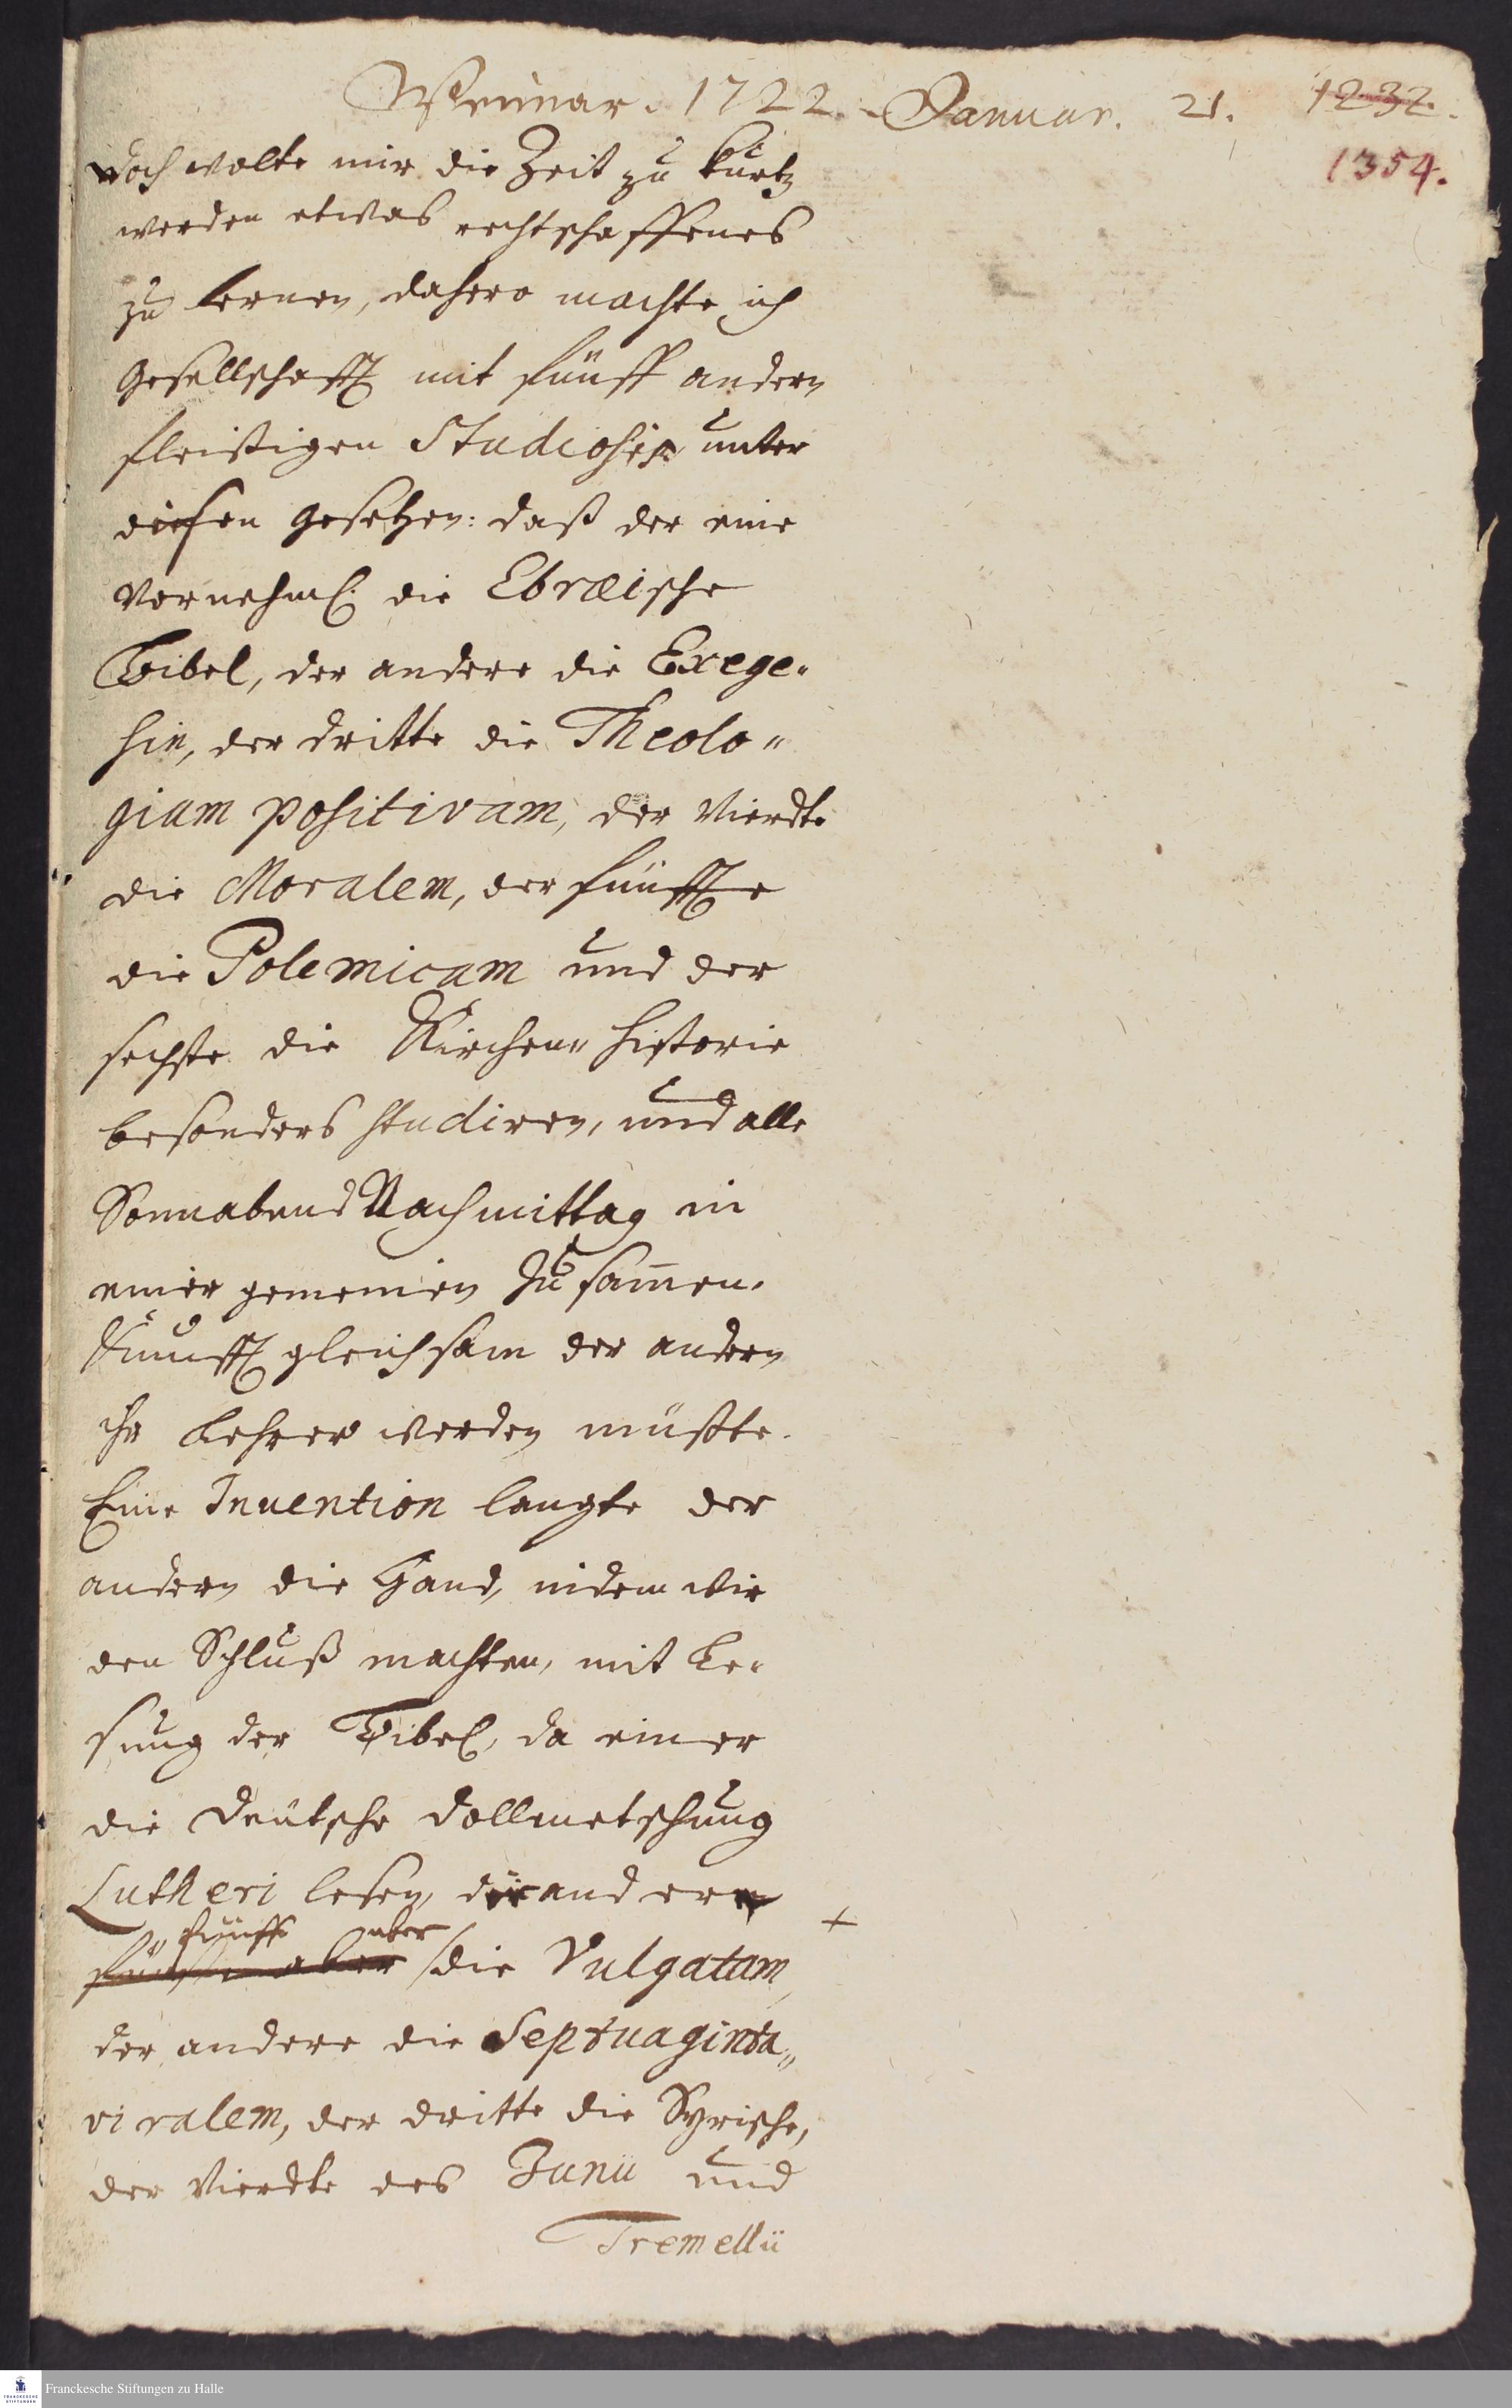 Weimar. 1722. Januar. 21. 1232.
1354.
doch wolte mir die Zeit zu kurtz
werden etwas rechtschaffenes
zu lernen, dahero machte ich
Gesellschafft mit fünff andern
fleißigen Studiosis unter
diesen Gesetzen: daß der eine
vornehml. die Ebræische
Bibel, der andere die Exege-
sin, der dritte die Theolo-
giam positivam, der Vierdte
die Moralem, der fünffte
die Polemicam und der
sechste die Kirchen-Historie
besonders studiren, und alle
Sonnabend Nachmittag in
einer gemeinen Zusam̅en-
Kunfft gleichsam der andern
ihr Lehrer werden müßte.
Eine Invention langte der
andern die Hand, indem wir
den Schluß machten, mit Le-
sung der Bibel, da einer
die deutsche Dollmetschung
Lutheri lesen, die andern +
fünffe aber
aber /die Vulgatam,
der andere die Septuaginta-
viralem, der dritte die Syrische,
der Vierdte des Junii und
Tremellii
Franckesche Stiftungen zu Halle
FRANCKESCHE STIFTUNGEN